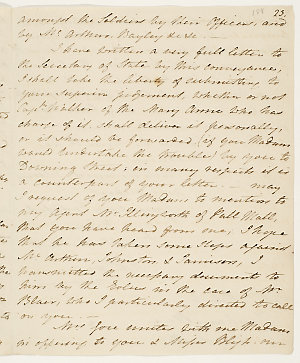 23.
amongst the Soldiers by their Officers, and
by Mr. Arthur, Bayley &c &c. —
I have written a very full letter to
the Secretary of State by this conveyance,
I shall take the liberty of submitting to
your Superior judgement, whether or not
Captn. of the Mary Anne who has
charge of it shall deliver it personally,
or it should be forwarded, (if you Madam
would undertake the trouble) by you to
Downing Street; in many respects it is
a counterpart of your letter. — may
I request of you Madam, to mention to
my Agent Mr. of Pall Mall,
that you have heard from me; I hope
that he has taken some steps against
Mr. Arthur, Johnston, & Jamison, I
transmitted the necessary documents to
him by the in the case of Mr.
Blair, who I particularly directed to call
on you. —
Mrs. Gore unites with me Madam
in offering to you & Misses Bligh our